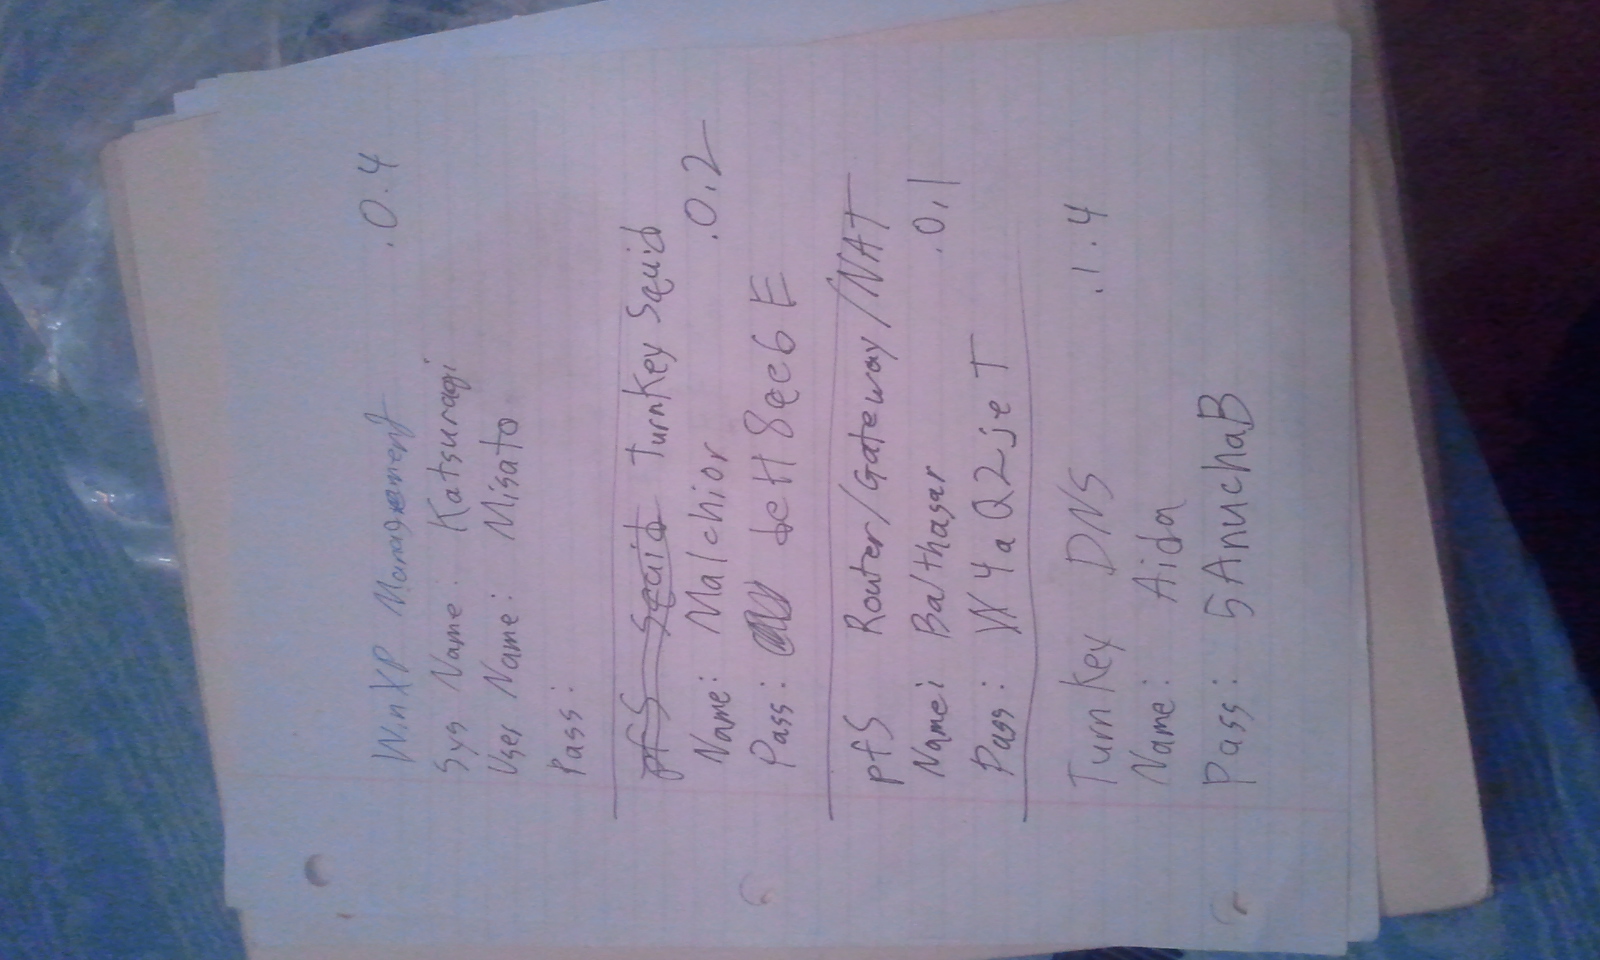 WinXP Management .0.4
Sys Name: Katsuragi
User Name: Misato
Pass:
pfS Squid TurnKey Squid
Name: Malchior .0.2
Pass:
pfS Router/Gateway/NAT
Name: Balthasar .0.1
Pass:
TurnKey DNS .1.4
Name: Aida
Pass: 5AnuchaB